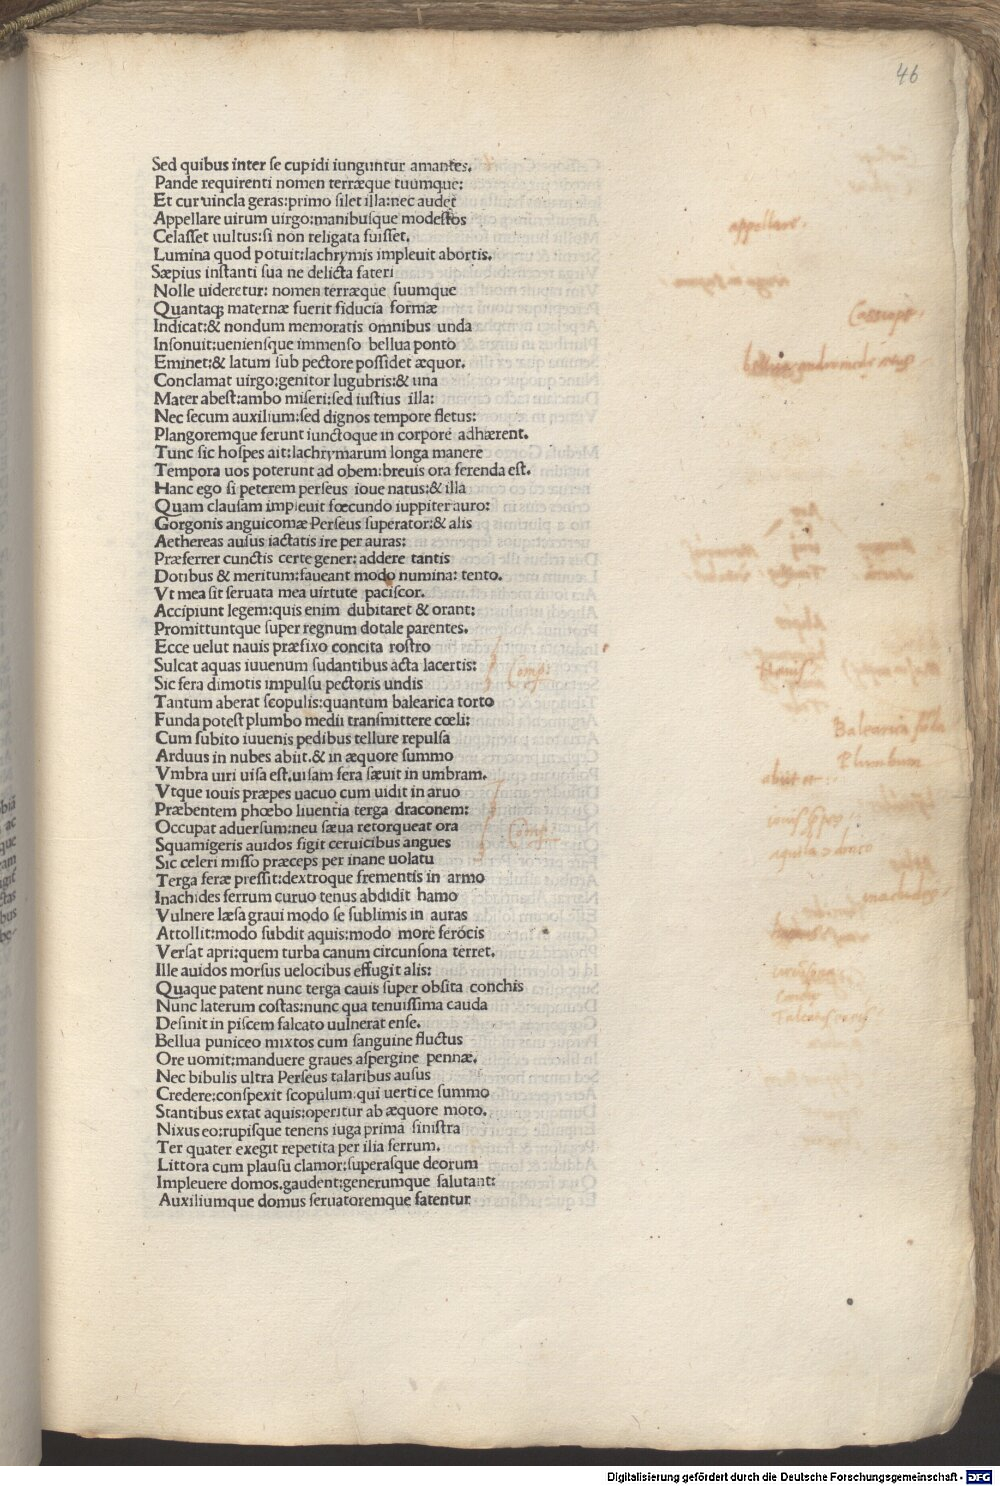 46
Sed quibus inter ſe cupidi iunguntur amantes.
Pande requirenti nomen terræque tuumque:
Et cur uincla geras:primo ſilet illa:nec audet
Appellare uirum uirgo:manibuſque modeſtos
Celaſſet uultus:ſi non religata fuiſſet.
Lumina quod potuit:lachrymis impleuit abortis.
Sæpius inſtanti ſua ne delicta fateri
Nolle uideretur: nomen terræque ſuumque
Quantaq; maternæ fuerit fiducia formæ
Indicat:& nondum memoratis omnibus unda
Inſonuit:uenienſque immenſo bellua ponto
Eminet:& latum ſub pectore poſſidet æquor.
Conclamat uirgo:genitor lugubris:& una
Mater abeſt:ambo miſeri:ſed iuſtius illa:
Nec ſecum auxilium:ſed dignos tempore fletus:
Plangoremque ferunt iunctoque in corpore adhærent.
Tunc ſic hoſpes ait:lachrymarum longa manere
Tempora uos poterunt ad obem:breuis ora ferenda eſt.
Hanc ego ſi peterem perſeus ioue natus:& illa
Quam clauſam impleuit fœcundo iuppiter auro:
Gorgonis anguicomæ Perſeus ſuperator:& alis
Aethereas auſus iactatis ire per auras:
Præferrer cunctis certe gener: addere tantis
Dotibus & meritum:faueant modo numina: tento.
Vt mea ſit ſeruata mea uirtute paciſcor.
Accipiunt legem:quis enim dubitaret & orant:
Promittuntque ſuper regnum dotale parentes.
Ecce uelut nauis præfixo concita roſtro
Sulcat aquas iuuenum ſudantibus acta lacertis:
Sic fera dimotis impulſu pectoris undis
Tantum aberat ſcopulis:quantum balearica torto
Funda poteſt plumbo medii tranſmittere cœli:
Cum ſubito iuuenis pedibus tellure repulſa
Arduus in nubes abiit.& in æquore ſummo
Vmbra uiri uiſa eſt.uiſam fera ſæuit in umbram.
Vtque iouis præpes uacuo cum uidit in aruo
Præbentem phœbo liuentia terga draconem:
Occupat aduerſum:neu ſæua retorqueat ora
Squamigeris auidos figit ceruicibus angues
Sic celeri miſſo præceps per inane uolatu
Terga feræ preſſit:dextroque frementis in armo
Inachides ferrum curuo tenus abdidit hamo
Vulnere læſa graui modo ſe ſublimis in auras
Attollit:modo ſubdit aquis:modo more ferocis
Verſat apri:quem turba canum circunſona terret.
Ille auidos morſus uelocibus effugit alis:
Quaque patent nunc terga cauis ſuper obſita conchis
Nunc laterum coſtas:nunc qua tenuiſſima cauda
Deſinit in piſcem falcato uulnerat enſe.
Bellua puniceo mixtos cum ſanguine fluctus
Ore uomit:manduere graues aſpergine pennæ.
Nec bibulis ultra Perſeus talaribus auſus
Credere:conſpexit ſcopulum:qui uertice ſummo
Stantibus extat aquis:operitur ab æquore moto.
Nixus eo:rupiſque tenens iuga prima ſiniſtra
Ter quater exegit repetita per ilia ferrum.
Littora cum plauſu clamor:ſuperaſque deorum
Impleuere domos.gaudent:generumque ſalutant:
Auxiliumque domus ſeruatoremque fatentur
appellare.
Cassiope
Comp:
Balearica
Plumbum
abiit et
Comp.
Inachides
Digitalisierung gefördert durch die Deutsche Forschungsgemeinschaft - DFG